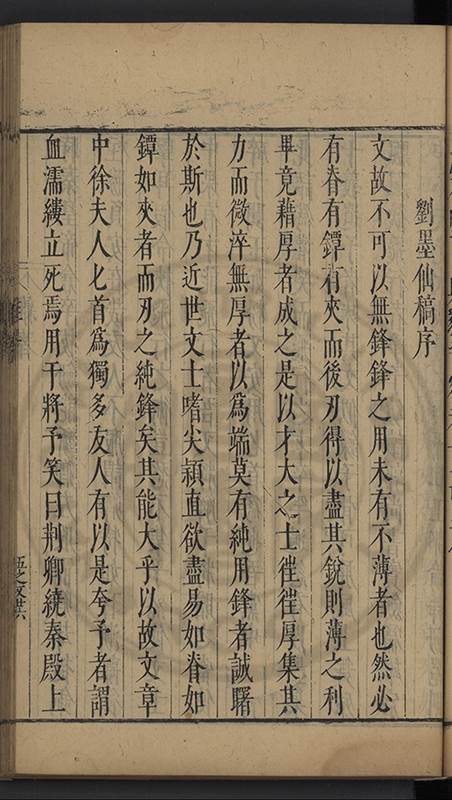 劉墨仙稿序
文故不可以無鋒鋒之用未有不薄者也然必
有脊有鐔有夾而後刃得以盡其銳則薄之利
畢竟藉厚者成之是以才大之士徃徃厚集其
力而微淬無厚者以為端莫有純用鋒者誠曙
於斯也乃近世文士嗜尖穎直欲盡易如脊如
鐔如夾者而刃之純鋒矣其能大乎以故文章
中徐夫人匕首為獨多友人有以是夸予者謂
血濡縷立死焉用干將予笑曰荆卿繞秦殿上